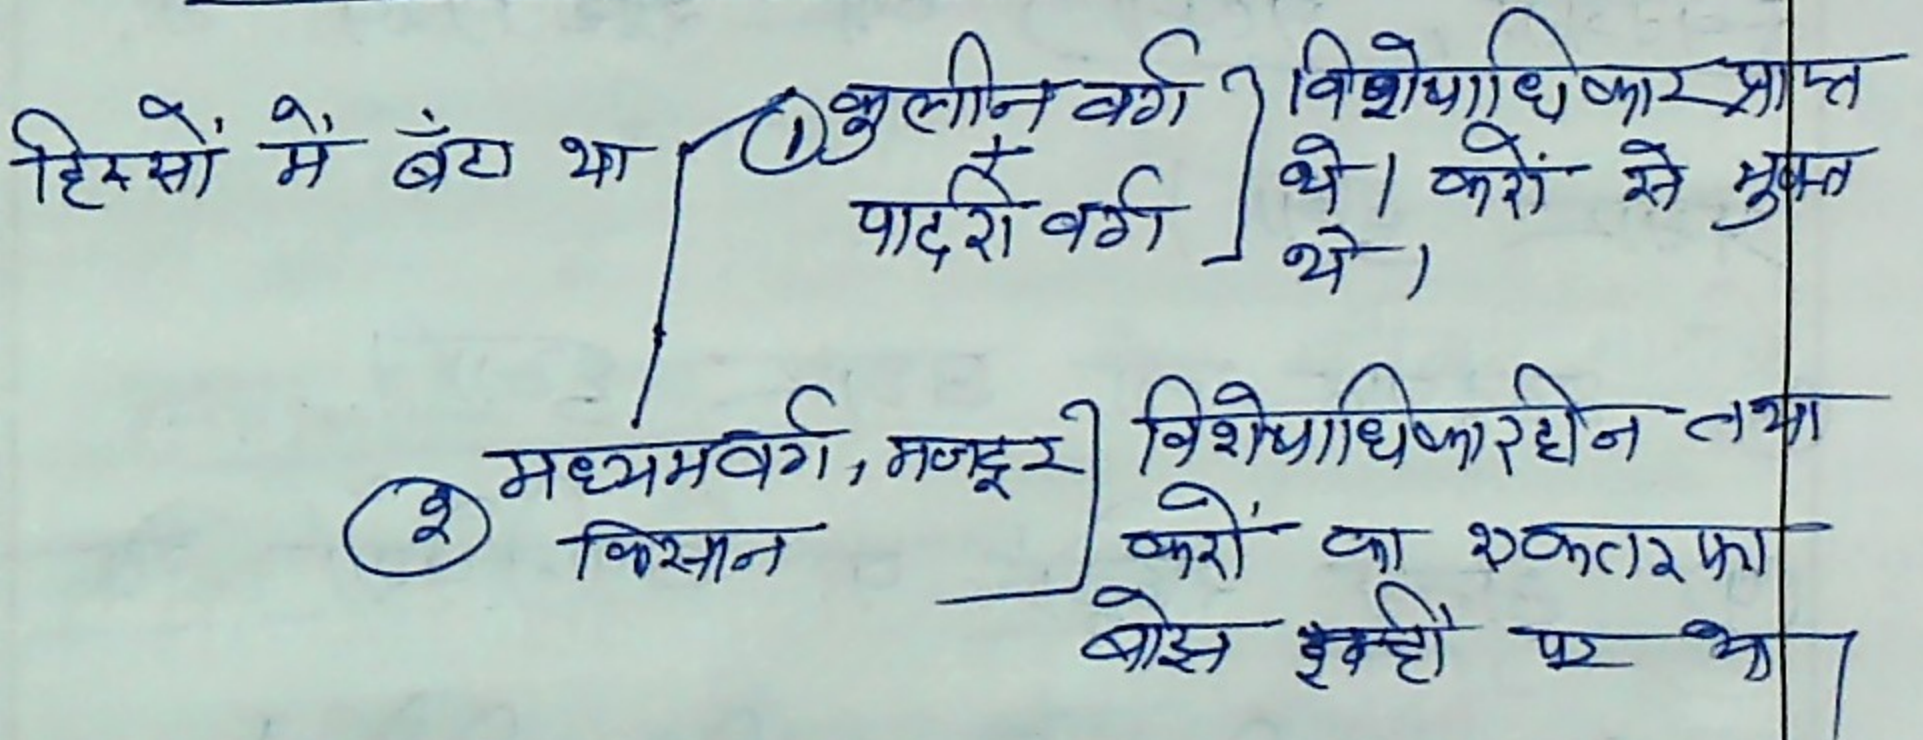 हिस्सों में बँटा था
① कुलीन वर्ग
+
पादरी वर्ग
विशेषाधिकार प्राप्त
थे। करों से मुक्त
थे।
② मध्यमवर्ग, मजदूर
किसान
विशेषाधिकारहीन तथा
करों का एकतरफा
बोझ इन्हीं पर था।